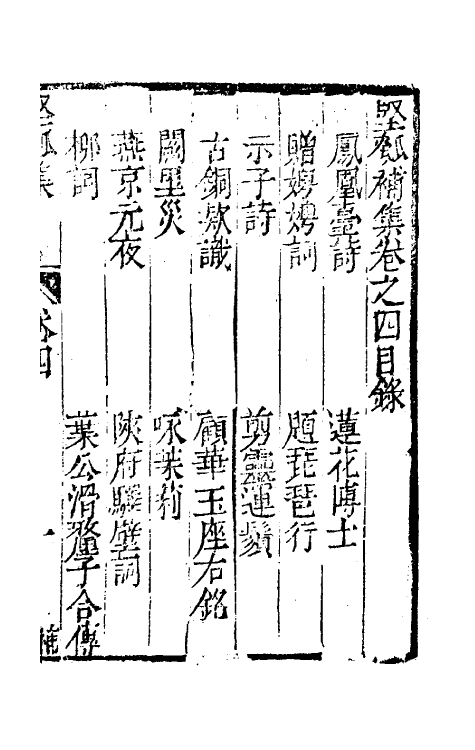 堅瓠補集卷之四目錄
鳳凰臺詩　蓮花博士
贈娉娉詞　題琵琶行
示子詩　剪靈運鬚
古銅款識　顧華玉座右銘
闕里災　咏茉莉
燕京元夜　陝府驛壁詞
柳詞　葉公滑釐子合傳
堅瓠集　卷四　一